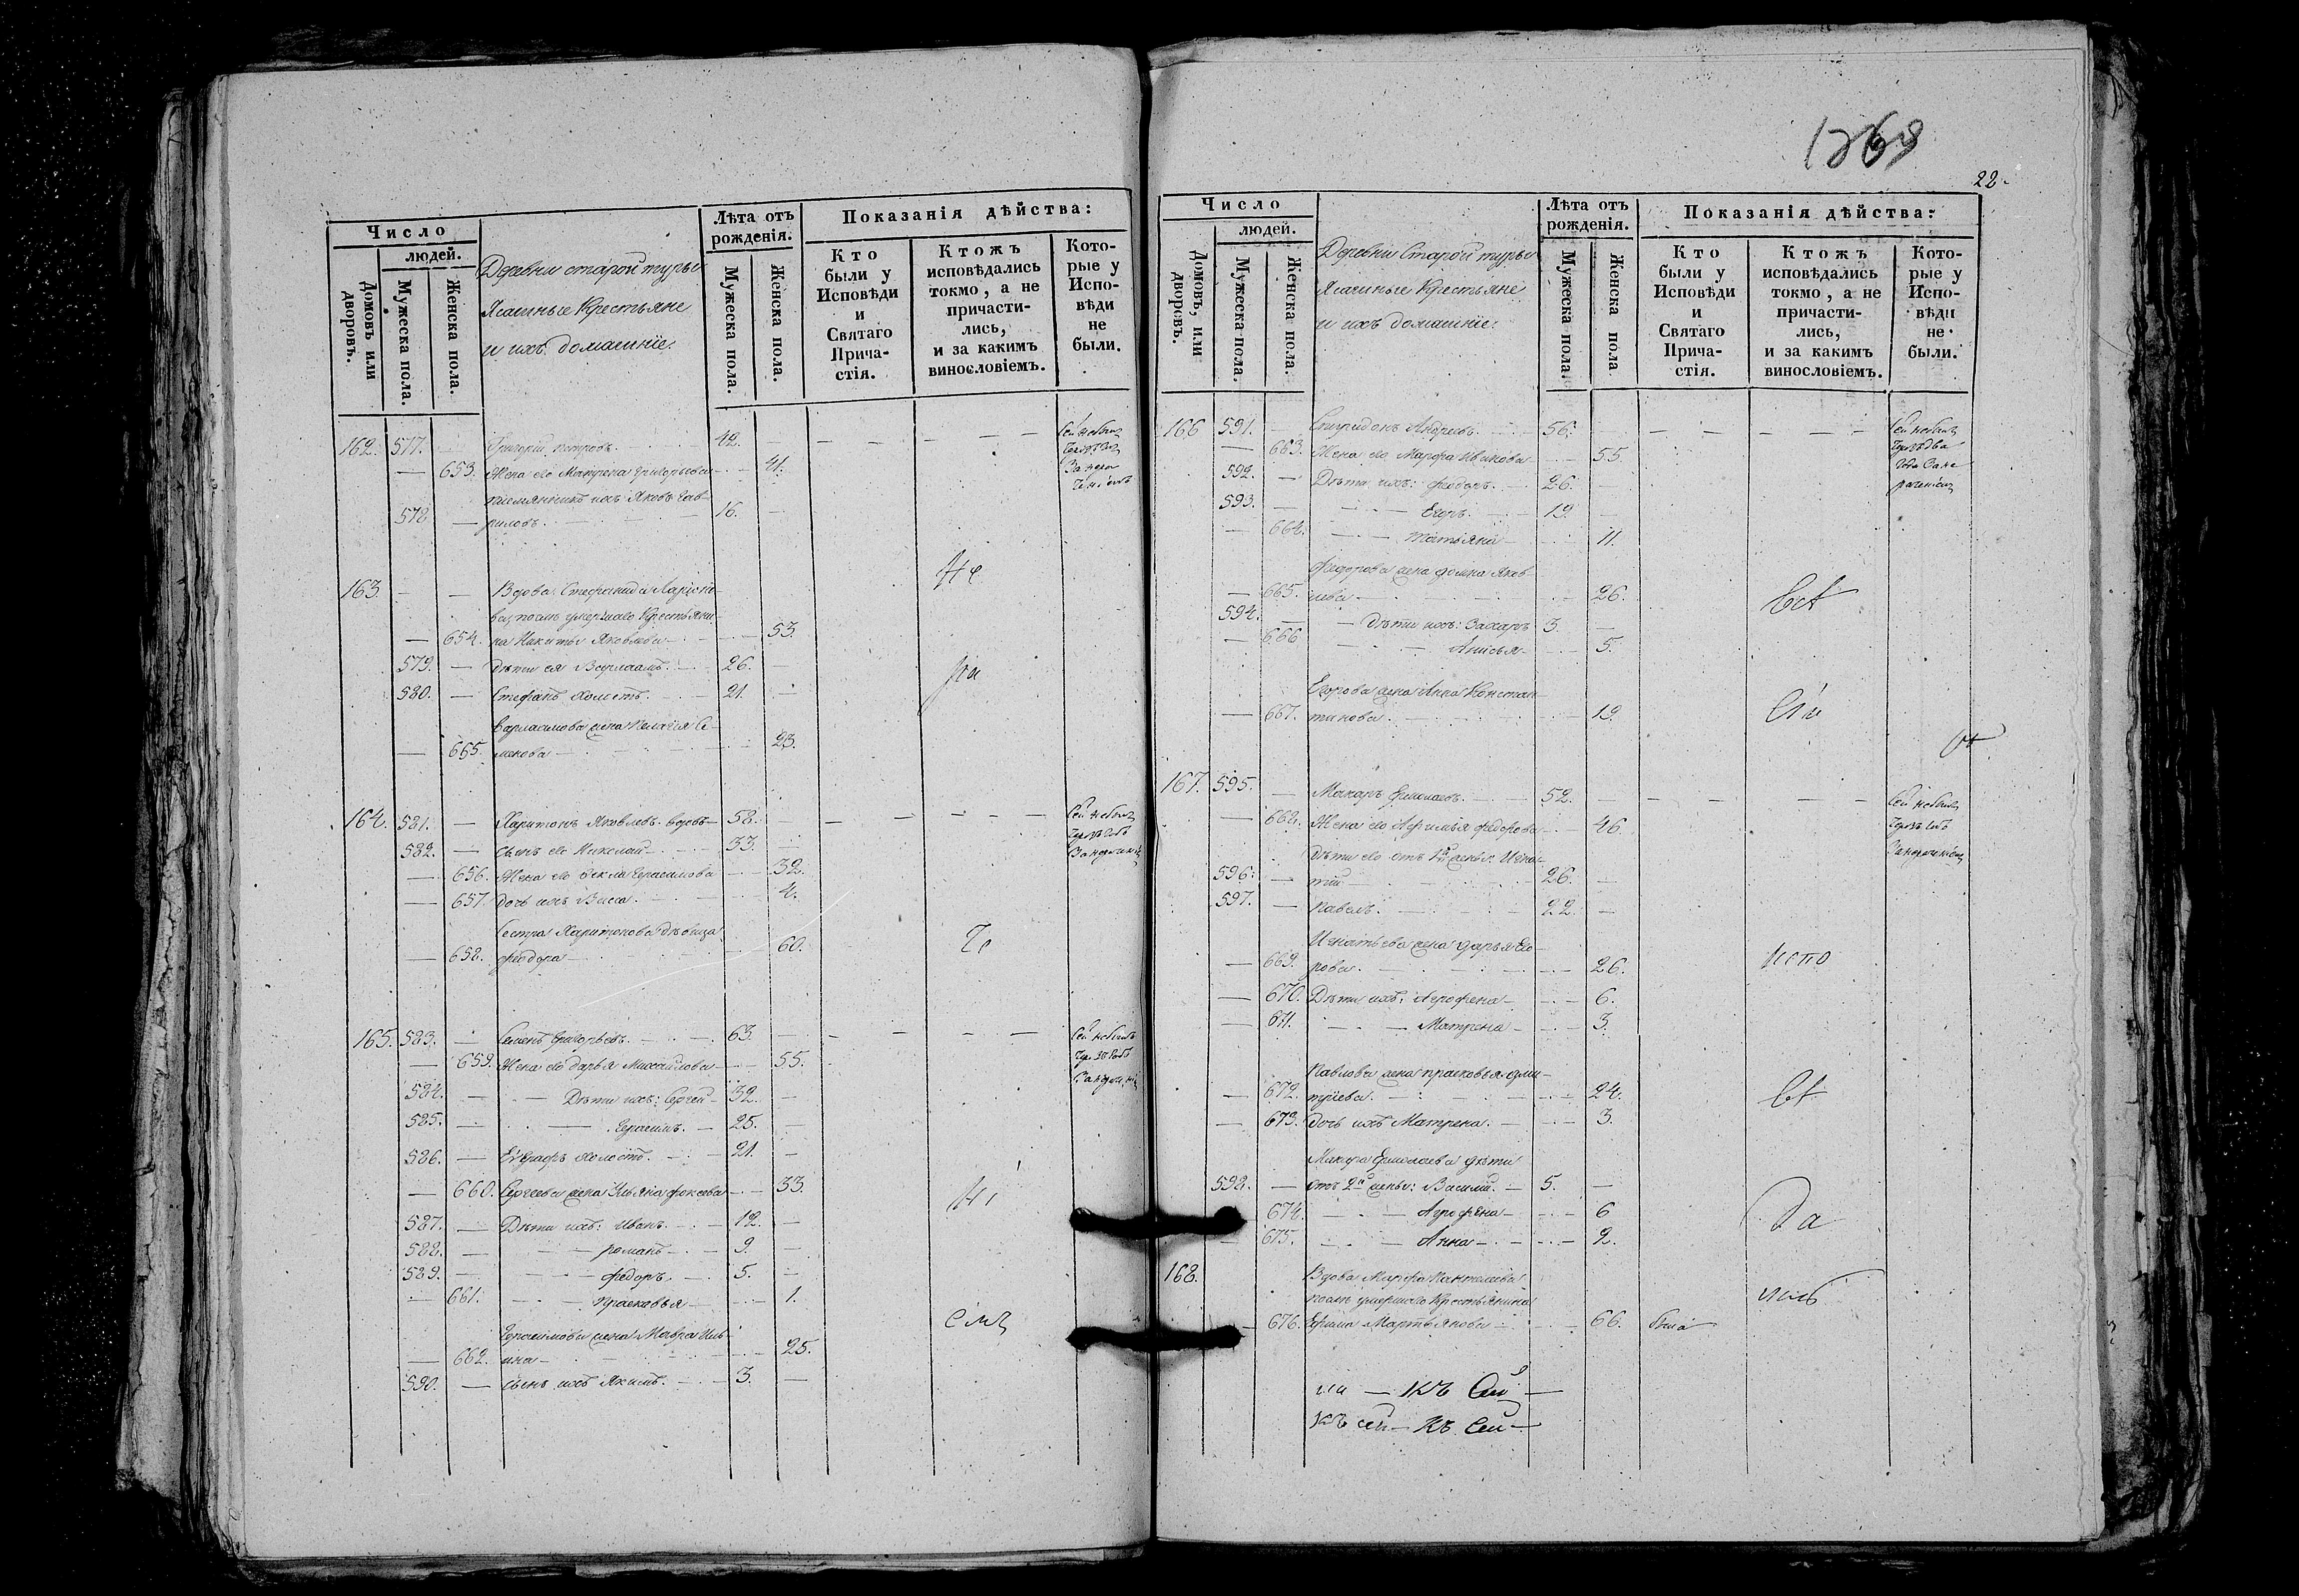 Число
людей.
Домовъ или дворовъ.
Мужеска пола.
Женска пола.
Деревни старой турьи
Ясашные Крестьяне
и ихъ домашніе.
Лѣта отъ рожденія.
Мужеска пола.
Женска пола.
Показанія дѣйства:
Кто были у Исповѣди и Святаго Прича-стія.
Ктожъ исповѣдались токмо, а не причасти-лись, и за какимъ винословіемъ.
Кото-рые у Испо-вѣди не были.
162. 577. Григорій Петровъ. 42.
653. Жена его Матрена Григорьева 41.
племянникъ ихъ Яковъ Гав-
578 риловъ. 16.
163. Вдова Стефанида Ларіоно-
ва, послѣ умершаго Крестьяни-
654. на Никиты Яковлева 53.
579. Дѣти ея Варлаамъ. 26.
580. Стефанъ холостъ. 21.
Варлаамова жена Пелагія Се-
665. менова 23.
164. 581. Харитонъ Яковлевъ вдовъ 58.
582. сынъ его Николай 33.
656. Жена его Фекла Герасимова 32.
657. дочь ихъ Васса. 4.
сестра Харитонова дѣвица
658. Феодора 60.
165. 583. Семенъ Григорьевъ. 63.
659. Жена его Дарья Михайлова 55.
584. Дѣти ихъ: Сергей 32.
585. Герасимъ. 25.
586. Евграфъ холостъ. 21.
660. Сергеева жена Ульяна Фокеева 33.
587. Дѣти ихъ: Иванъ. 12.
588. романъ 9.
589. федоръ. 5.
661. Прасковья 1.
Герасимова жена Мавра Иль-
662. ина 25.
590. сынъ ихъ Якимъ. 3.
1268
22.
Число
людей.
Домовъ, или дворовъ.
Мужеска пола.
Женска пола.
Деревни Старой турьи
Ясашные Крестьяне
и ихъ домашніе.
Лѣта отъ рожденія.
Мужеска пола.
Женска пола
Показанія дѣйства:
Кто были у Исповѣди и Святаго Прича-стія.
Ктожъ исповѣдались токмо, а не причасти-лись, и за какимъ винословіемъ.
Кото-рые у Испо-вѣди не были.
166 591. Спиридонъ Андреевъ. 56.
663. Жена его Марфа Иванова 55.
592. Дѣти ихъ: федоръ. 26.
593. Егоръ. 19.
664. татьяна 11.
федорова жена Домна Яков-
665. лева 26.
594. дѣти ихъ: Захаръ 3.
666 Анисья 5.
Егорова жена Анна Констан-
667. тинова. 19.
167. 595. Макаръ Ермолаевъ. 52.
668. Жена его Афимья федорова 46.
дѣти его отъ 1й жены: Игна-
596. тій 26.
597. Павелъ. 22.
Игнатьева жена Дарья Его-
669. рова. 26.
670. Дѣти ихъ: Агрофена 6.
671. Матрена 3.
Павлова жена прасковья Дми-
672. тріева. 24.
673. дочь ихъ Матрена. 3.
Макара Ермолаева дѣти
598. отъ 2й жены: Василій. 5.
674. Агрофена 6
675. Анна 2.
168. Вдова Марфа Пантелеева
послѣ умершаго Крестьянина
676. Ефима Мартьянова 66. была